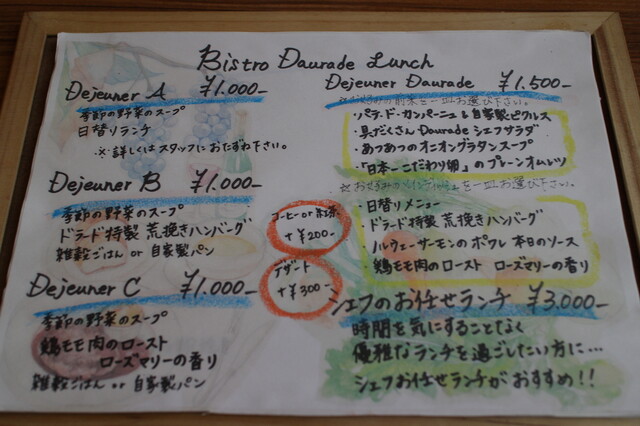 Bistro Daurade Lunch
Dejeuner A ¥1.000-
季節の野菜のスープ
日替りランチ
※詳しくはスタッフにおたずね下さい。
Dejeuner B ¥1.000-
季節の野菜のスープ
ドラード特製 荒挽きハンバーグ
雑穀ごはん or 自家製パン
Dejeuner C ¥1.000-
季節の野菜のスープ
鶏モモ肉のロースト
ローズマリーの香り
雑穀ごはん or 自家製パン
コーヒー or 紅茶
+¥200-
デザート
+¥300-
Dejeuner Daurade ¥1.500-
※お好みの前菜を一皿お選び下さい。
・パテ・ド・カンパーニュと自家製ピクルス
・具だくさん Daurade シェフサラダ
・あつあつのオニオングラタンスープ
・「日本一こだわり卵」のプレーンオムレツ
※お好みのメインディッシュを一皿お選び下さい。
・日替りメニュー
・ドラード特製 荒挽きハンバーグ
・ノルウェーサーモンのポワレ 本日のソース
・鶏モモ肉のロースト ローズマリーの香り
シェフのお任せランチ ¥3.000-
時間を気にすることなく
優雅なランチを過ごしたい方に…
シェフお任せランチがおすすめ!!